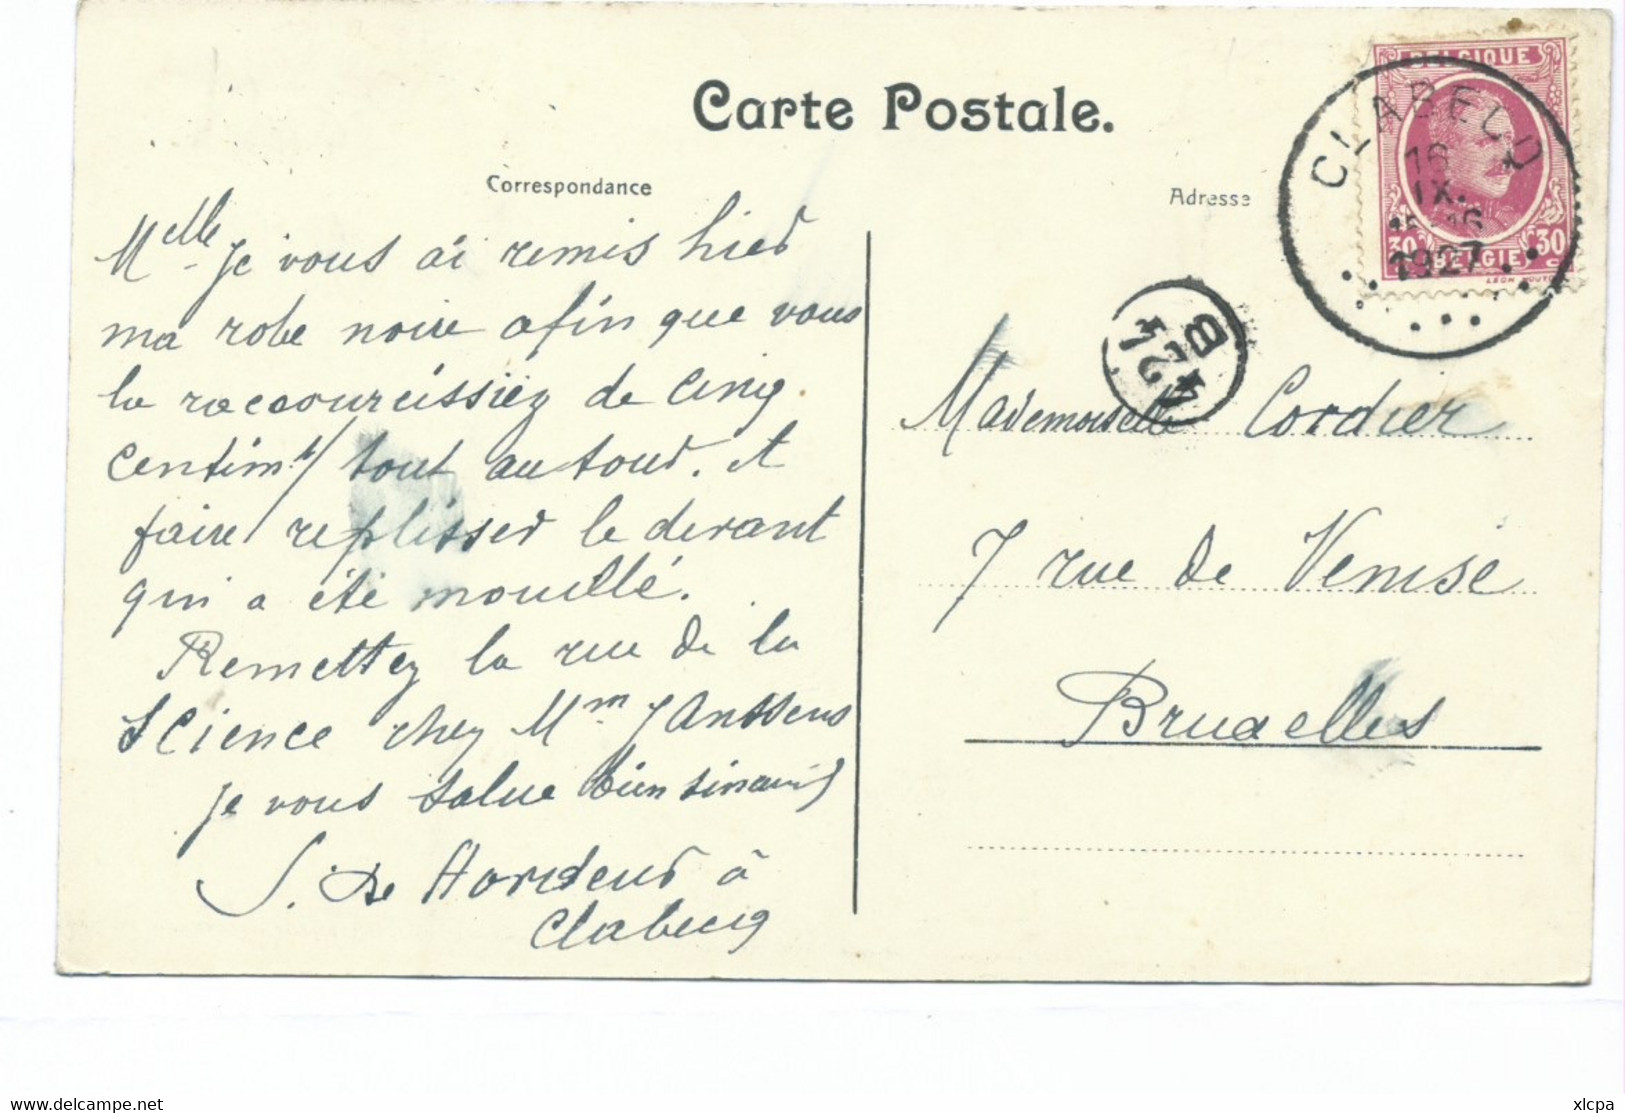 Carte Postale.
Correspondance
Adresse
Melle Je vous ai remis hier
ma robe noire afin que vous
la raccourcissiez de cinq
centimt/ tout autour. et
faire replisser le devant
qui a été mouillé.
Remettez la rue de la
Science chez Mm Janssens
je vous salue bien
S. De
à
Clabecq
Mademoiselle Cordier
7 rue de Venise
Bruxelles
BELGIQUE
30 BELGIË 30
CLABECQ
16
IX.
1927
www.delcampe.net
xlcpa